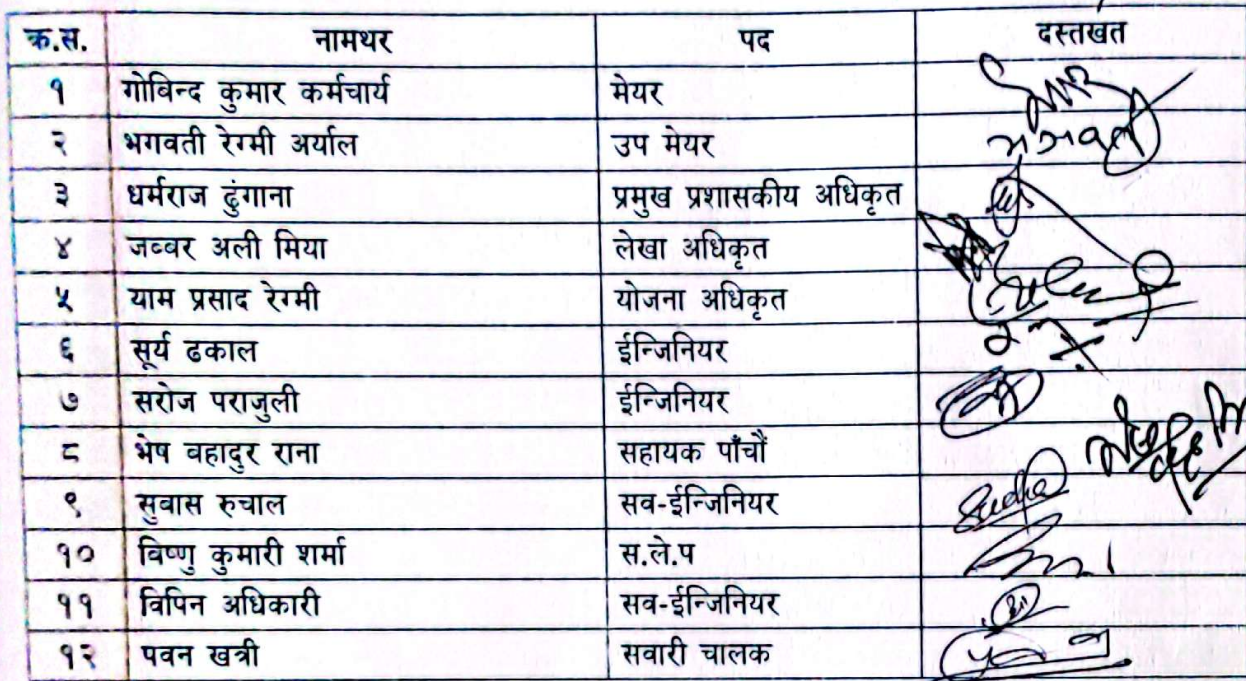 क्र.स. नामथर पद दस्तखत
१ गोविन्द कुमार कर्मचार्य मेयर
२ भगवती रेग्मी अर्याल उप मेयर भगवती
३ धर्मराज ढुंगाना प्रमुख प्रशासकीय अधिकृत
४ जब्बर अली मिया लेखा अधिकृत
५ याम प्रसाद रेग्मी योजना अधिकृत
६ सूर्य ढकाल ईन्जिनियर
७ सरोज पराजुली ईन्जिनियर
८ भेष वहादुर राना सहायक पाँचौं
९ सुवास रुचाल सव-ईन्जिनियर
१० बिष्णु कुमारी शर्मा स.ले.प
११ विपिन अधिकारी सव-ईन्जिनियर
१२ पवन खत्री सवारी चालक